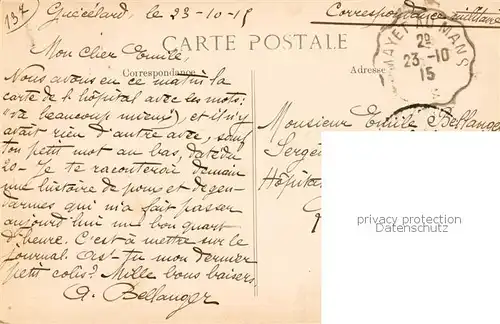 137
le 23-10-15
Correspondance militaire
CARTE POSTALE
MAYENNE AU MANS
2º
23-10
15
Correspondance
Adresse
Mon Cher Emile,
Nous avons eu ce matin la
carte de l'hôpital avec les mots:
"va beaucoup mieux", et il n'y
avait rien d'autre avec, sauf
ton petit mot au bas, daté du
20- Je te raconterai demain
une histoire de poux et de gen-
darmes qui m'a fait passer
aujourd'hui un bon quart
d'heure. C'est à mettre sur le
journal. As-tu mon dernier
petit colis? Mille bons baisers.
A. Bellanger
Monsieur Emile Bellanger
Serge
Hôpita
privacy protection
watermark